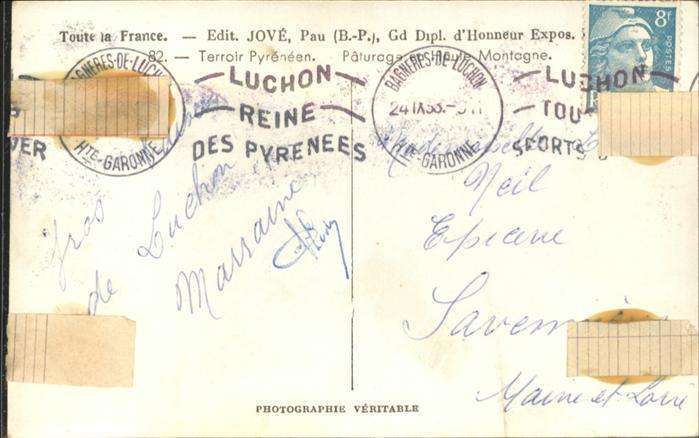 Toute la France. — Edit. JOVÉ, Pau (B.-P.), Gd Dipl. d'Honneur Expos.
82. — Terroir Pyrénéen. Pâturage Haute Montagne.
8F
POSTES
BAGNÈRES-DE-LUCHON
Hte-GARONNE
LUCHON
REINE
DES PYRENEES
BAGNÈRES-DE-LUCHON
24 IX 53
Hte-GARONNE
LUCHON
TOU
SPORTS
VER
Gros
de Luchon
Marraine
Mademoiselle
Neil
Epicerie
Maine et Loire
PHOTOGRAPHIE VÉRITABLE